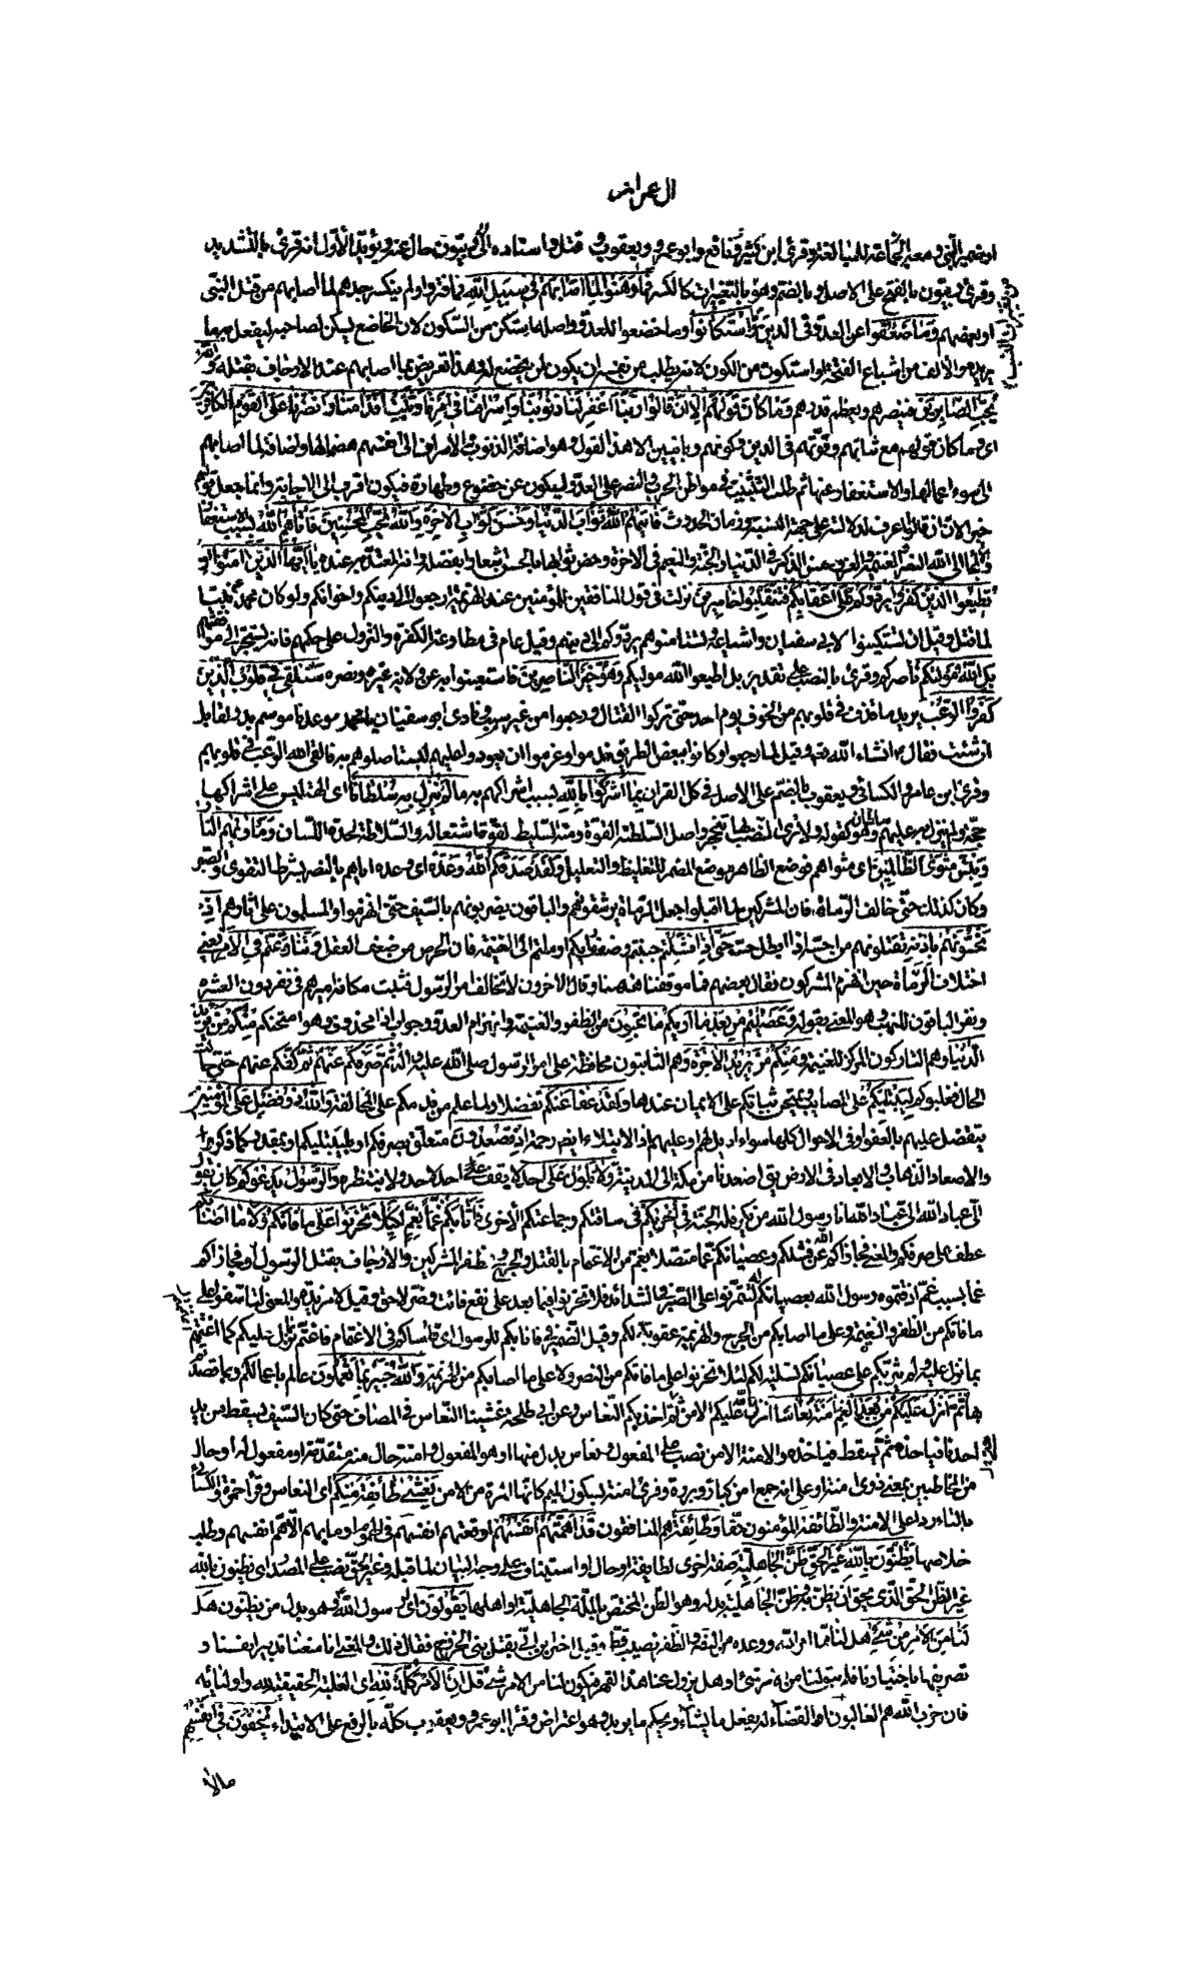 ال عمران
او ضمير النبي ومعه ربيون حال عنه ويؤيد الأول انه قرئ بالتشديد
وقرئ ربيون بالفتح على الاصل وبالضم وهو من التغييرات كالكسر فما وهنوا لما اصابهم في سبيل الله فما فتروا ولم ينكسر جدهم لما اصابهم من قتل النبي
او بعضهم وما ضعفوا عن العدو وفي الدين وما استكانوا وما خضعوا للعدو واصله استكن من السكون لان الخاضع يسكن لصاحبه ليفعل به ما
يريده والالف من اشباع الفتحة او استكون من الكون لانه يطلب من نفسه ان يكون لمن يخضع له وهذا تعريض بما اصابهم عند الارجاف بقتله والله
يحب الصابرين فينصرهم ويعظم قدرهم وما كان قولهم الا ان قالوا ربنا اغفر لنا ذنوبنا واسرافنا في امرنا وثبت اقدامنا وانصرنا على القوم الكافرين
اي وما كان قولهم مع ثباتهم وقوتهم في الدين وكونهم ربانيين الا هذا القول وهو اضافة الذنوب والاسراف الى انفسهم هضما لها واضافة لما اصابهم
الى سوء اعمالها والاستغفار عنها ثم طلب التثبيت في مواطن الحرب والنصر على العدو ليكون عن خضوع وطهارة فيكون اقرب الى الاجابة وانما جعل قولهم
خبرا لان ان قالوا اعرف لدلالته على جهة النسبة وزمان الحدوث فاتيهم الله ثواب الدنيا وحسن ثواب الآخرة والله يحب المحسنين فاتاهم الله بسبب الاستغفار
واللجا الى الله النصر والغنيمة والعز وحسن الذكر في الدنيا والجنة والنعيم في الآخرة وخص ثوابها بالحسن اشعارا بفضله وانه المعتد به عنده يا ايها الذين امنوا ان
تطيعوا الذين كفروا يردوكم على اعقابكم فتنقلبوا خاسرين نزلت في قول المنافقين للمؤمنين عند الهزيمة ارجعوا الى دينكم واخوانكم ولو كان محمد نبيا
لما قتل وقيل ان تستكينوا لابي سفيان واشياعه وتستامنوهم يردوكم الى دينهم وقيل عام في مطاوعة الكفرة والنزول على حكمهم فانه يستجر الى موافقتهم
بل الله موليكم ناصركم وقرئ بالنصب على تقدير بل اطيعوا الله موليكم وهو خير الناصرين فاستعينوا به عن ولاية غيره ونصره سنلقي في قلوب الذين
كفروا الرعب يريد ما قذف في قلوبهم من الخوف يوم احد حتى تركوا القتال ورجعوا من غير سبب ونادى ابو سفيان يا محمد موعدنا موسم بدر لقابل
ان شئت فقال ان شاء الله وقيل لما رجعوا وكانوا ببعض الطريق ندموا وعزموا ان يعودوا عليهم ليستاصلوهم فالقى الله الرعب في قلوبهم
وقرئ ابن عامر والكسائي ويعقوب بالضم على الاصل في كل القران بما اشركوا بالله بسبب اشراكهم به ما لم ينزل به سلطانا اي الهة ليس على اشراكها
حجة ولم ينزل به عليهم سلطان وهو كقوله ولا ترى الضب بها ينجحر واصل السلطنة القوة ومنه السليط لقوة اشتعاله والسلاطة لحدة اللسان وماويهم النار
وبئس مثوى الظالمين اي مثواهم فوضع الظاهر موضع المضمر للتغليظ والتعليل ولقد صدقكم الله وعده اي وعده اياهم بالنصر بشرط التقوى والصبر
وكان كذلك حتى خالف الرماة فان المشركين لما اقبلوا جعل الرماة يرشقونهم والباقون يضربونهم بالسيف حتى انهزموا والمسلمون على اثارهم اذ
تحسونهم باذنه تقتلونهم من احسه اذا ابطل حسه حتى اذا فشلتم جبنتم وضعف رايكم او ملتم الى الغنيمة فان الحرص من ضعف العقل وتنازعتم في الامر يعني
اختلاف الرماة حين انهزم المشركون فقال بعضهم فما موقفنا ههنا وقال الاخرون لا نخالف امر الرسول فثبت مكانه اميرهم في نفر دون العشرة
ونفر الباقون للنهب وهو المعني بقوله وعصيتم من بعد ما اريكم ما تحبون من الظفر والغنيمة وانهزام العدو وجواب اذا محذوف وهو امتحنكم منكم من يريد
الدنيا وهم التاركون المركز للغنيمة ومنكم من يريد الآخرة وهم الثابتون محافظة على امر الرسول صلى الله عليه ثم صرفكم عنهم ثم كفكم عنهم حتى حالت
الحال فغلبوكم ليبتليكم على المصائب ويمتحن ثباتكم على الايمان عندها ولقد عفا عنكم تفضلا ولما علم من ندمكم على المخالفة والله ذو فضل على المؤمنين
يتفضل عليهم بالعفو او في الاحوال كلها سواء اديل لهم او عليهم اذ الابتلاء ايضا رحمة اذ تصعدون متعلق بصرفكم او ليبتليكم او بمقدر كاذكروا
والاصعاد الذهاب والابعاد في الارض يقال اصعدنا من مكة الى المدينة ولا تلون على احد لا يقف احد لاحد ولا ينتظره والرسول يدعوكم كان يقول
الي عباد الله الي عباد الله انا رسول الله من يكر فله الجنة في اخريكم في ساقتكم وجماعتكم الاخرى فاثابكم غما بغم لكيلا تحزنوا على ما فاتكم ولا ما اصابكم
عطف على صرفكم والمعنى فجازاكم الله عن فشلكم وعصيانكم غما متصلا بغم من الاغتمام بالقتل والجرح وظفر المشركين والارجاف بقتل الرسول او فجازاكم
غما بسبب غم اذقتموه رسول الله بعصيانكم له لتتمرنوا على الصبر في الشدائد فلا تحزنوا فيما بعد على نفع فائت وضر لاحق وقيل لا مزيدة والمعنى لتاسفوا على
ما فاتكم من الظفر والغنيمة وعلى ما اصابكم من الجرح والهزيمة عقوبة لكم وقيل الضمير في فاثابكم للرسول اي فاساكم في الاغتمام فاغتم بما نزل عليكم كما اغتممتم
بما نزل عليه ولم يثربكم على عصيانكم تسلية لكم لئلا تحزنوا على ما فاتكم من النصر ولا على ما اصابكم من الهزيمة والله خبير بما تعملون عالم باعمالكم وبما قصدتم
بها ثم انزل عليكم من بعد الغم امنة نعاسا انزل الله عليكم الامن حتى اخذكم النعاس وعن ابي طلحة غشينا النعاس في المصاف حتى كان السيف يسقط من يد
احدنا فياخذه ثم يسقط فياخذه والامنة الامن نصب على المفعول ونعاسا بدل منها او هو المفعول وامنة حال منه متقدمة او مفعول له او حال
من المخاطبين بمعنى ذوي امنة او على انه جمع امن كبار وبررة وقرئ امنة بسكون الميم كانها المرة من الامن يغشى طائفة منكم اي النعاس وقرا حمزة والكسائي
بالتاء ردا على الامنة والطائفة المؤمنون حقا وطائفة هم المنافقون قد اهمتهم انفسهم اوقعتهم انفسهم في الهموم او ما بهم الا هم انفسهم وطلب
خلاصها يظنون بالله غير الحق ظن الجاهلية صفة اخرى لطائفة او حال او استيناف على وجه البيان لما قبله وغير الحق نصب على المصدر اي يظنون بالله
غير الظن الحق الذي يحق ان يظن به وظن الجاهلية بدله وهو الظن المختص بالملة الجاهلية او اهلها يقولون اي لرسول الله وهو بدل من يظنون هل
لنا من الامر من شيء هل لنا مما امر الله ووعده من النصر والظفر نصيب قط وقيل اخبر ابن ابي بقتل بني الخزرج فقال ذلك والمعنى انا منعنا تدبير انفسنا و
تصريفها باختيارنا فلم يبق لنا من الامر شيء او هل يزول عنا هذا القهر فيكون لنا من الامر شيء قل ان الامر كله لله اي الغلبة الحقيقية لله واوليائه
فان حزب الله هم الغالبون او القضاء له يفعل ما يشاء ويحكم ما يريد وهو اعتراض وقرا ابو عمرو ويعقوب كله بالرفع على الابتداء يخفون في انفسهم
مالا